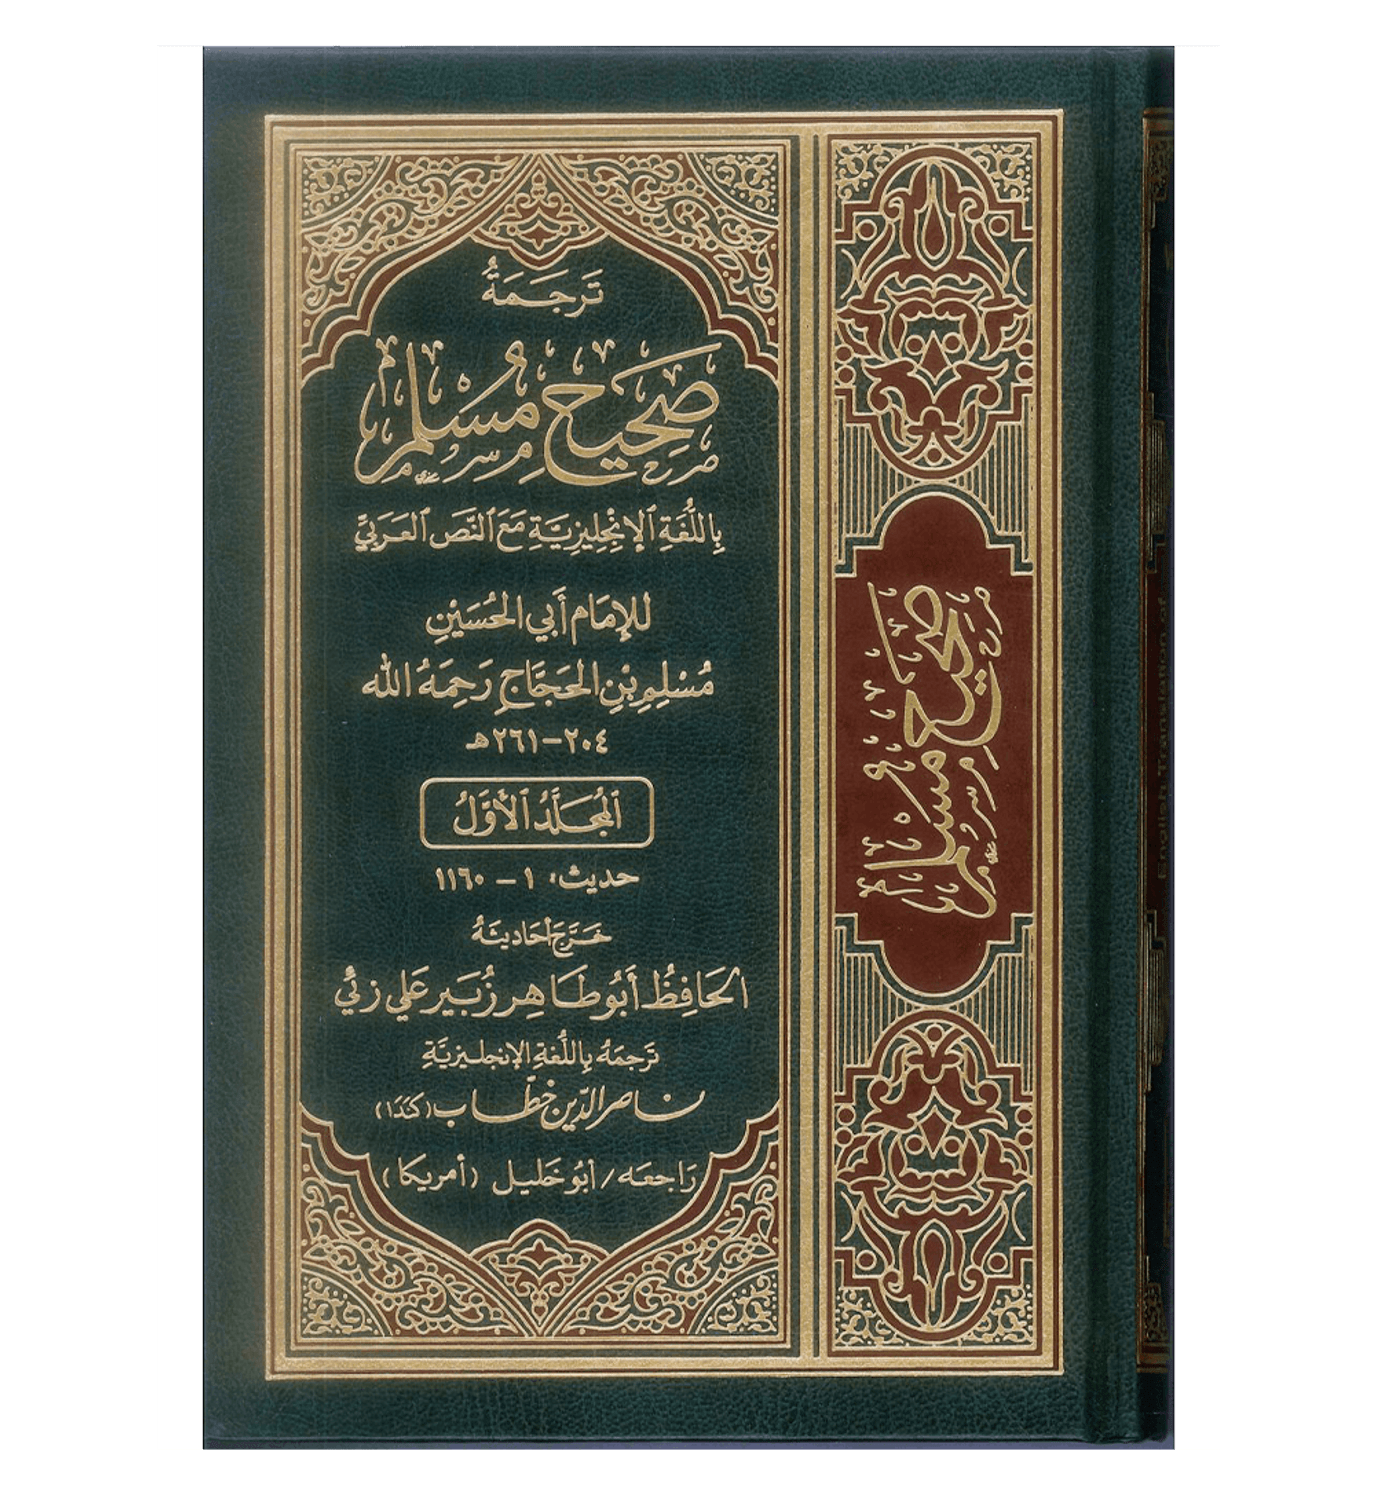 تَرَجَمَةُ
صَحِيحُ مُسْلِم
بِاللُّغَةِ الإِنْجِلِيزِيَّةِ مَعَ النَّصِ العَرَبَيِّ
للإمَام أَبي الحُسَيْنِ
مُسْلِمِ بْنِ الحَجَّاجِ رَحِمَهُ الله
٢٠٤-٢٦١هـ
المُجَلَّدُ الأَوَّلُ
حديث: ١ - ١١٦٠
خَرَّجَ أَحَاديثَهُ
الحَافِظُ أَبُو طَاهِر زُبَير عَلي زئي
تَرجَمَهُ بِاللُّغَةِ الإنجليزيَّةِ
ناصر الدِّين خطَّاب (كَنَدَا)
رَاجعَه / أبُو خَليل (أمريكَا)
صَحِيحُ مُسْلِم
English Translation of